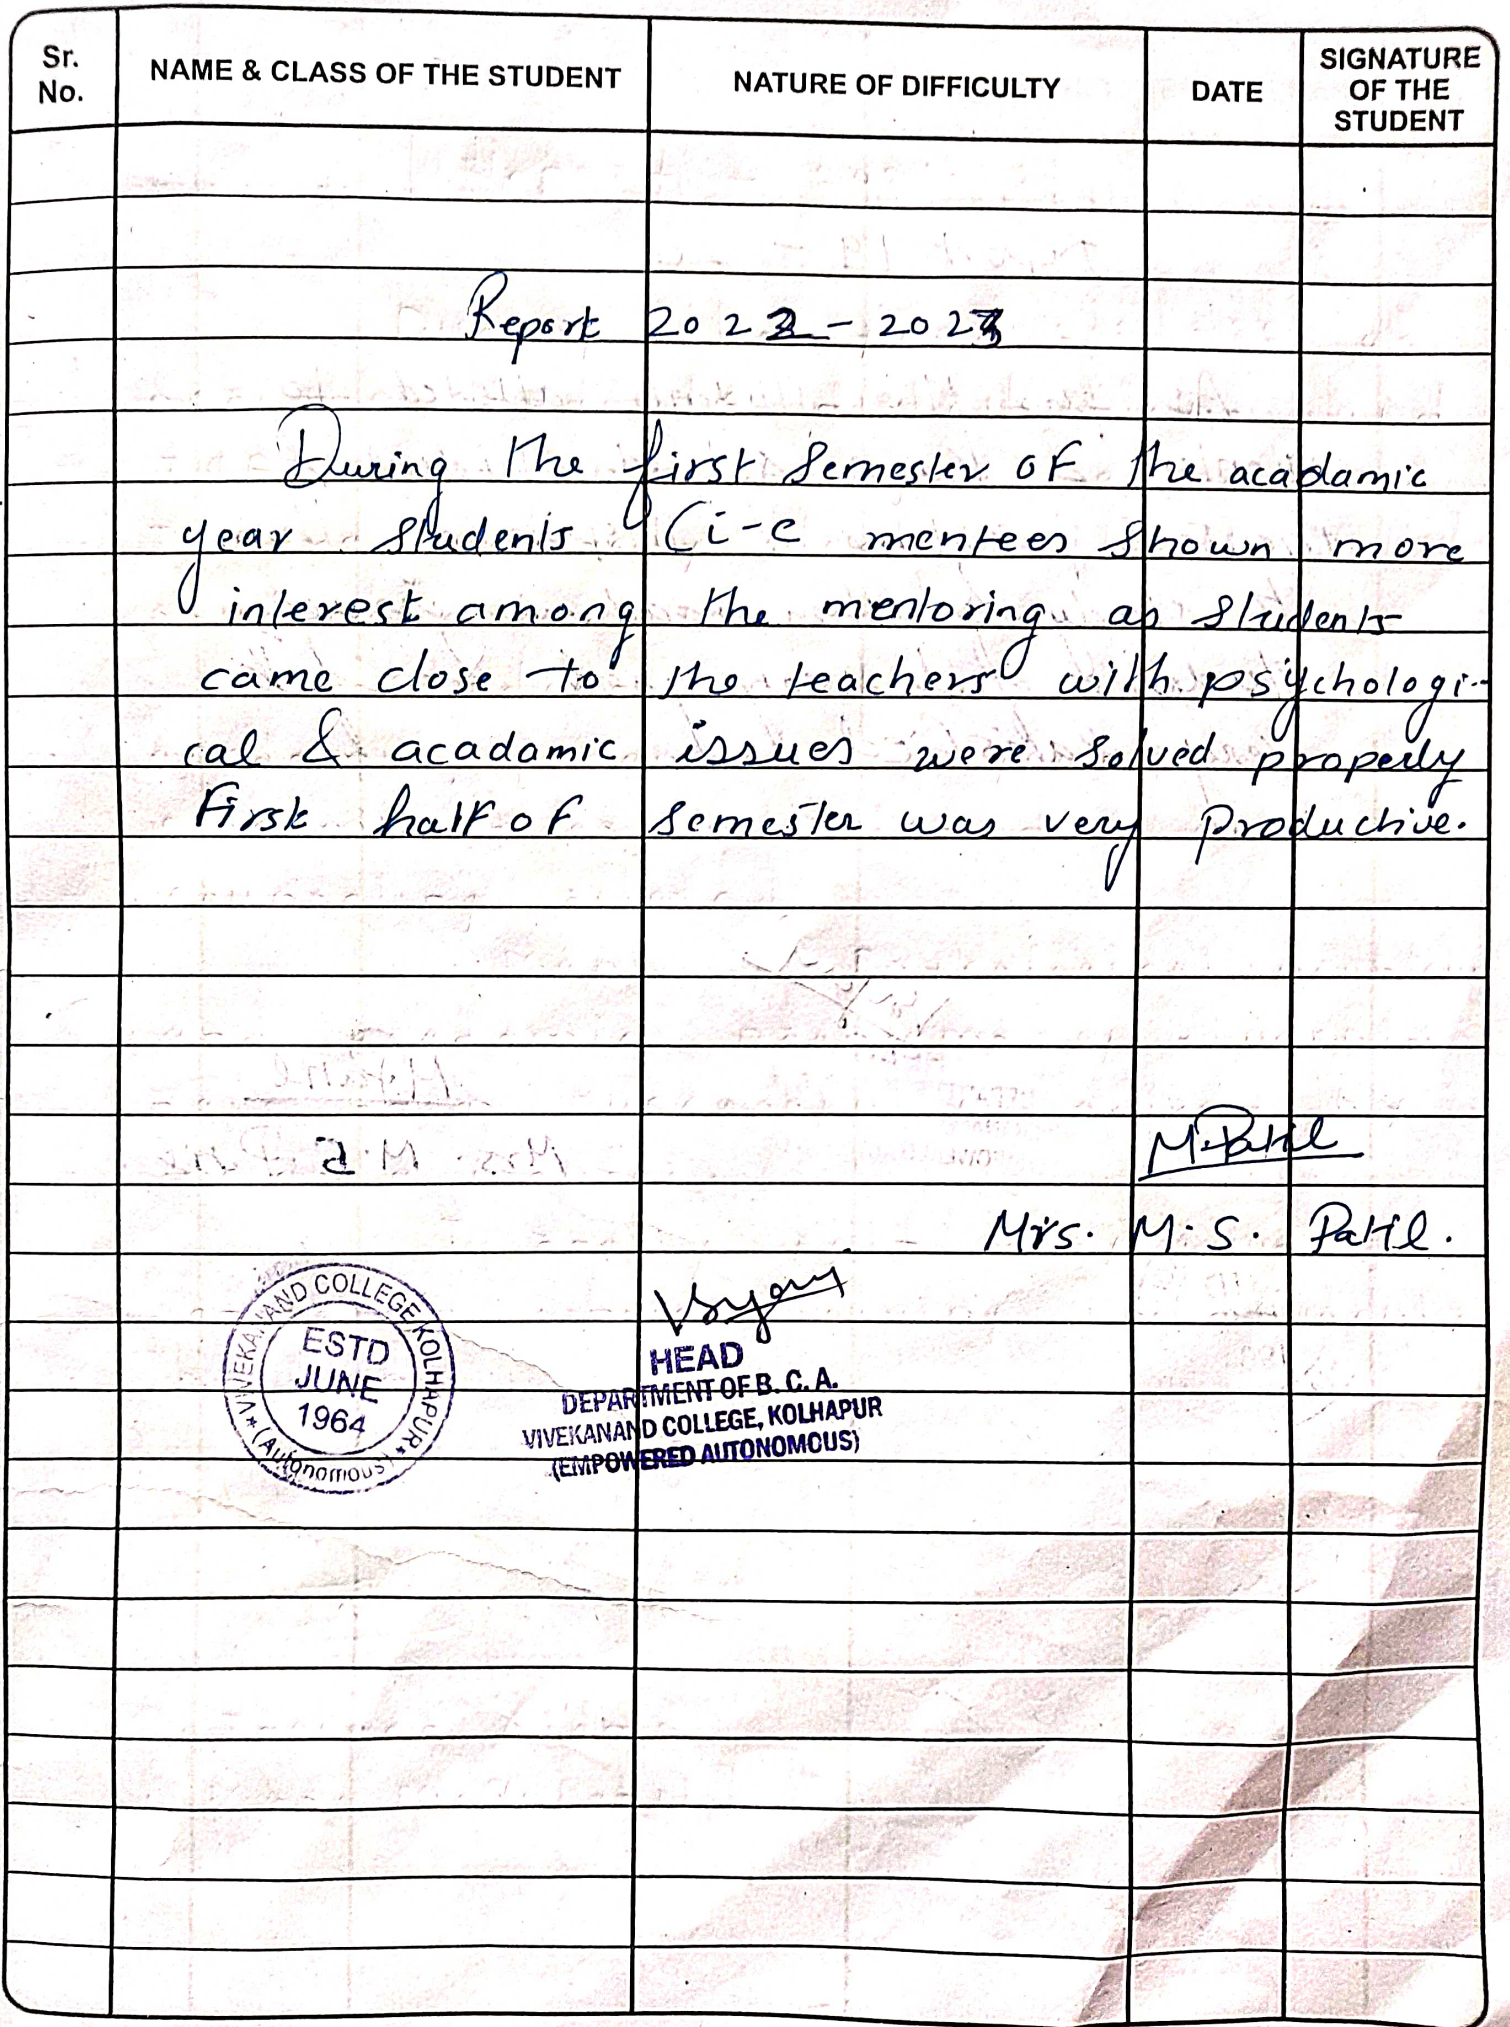 Sr. No.
NAME & CLASS OF THE STUDENT
NATURE OF DIFFICULTY
DATE
SIGNATURE OF THE STUDENT
Report 2022-2023
During the first semester of the acadamic
year students (i-e mentees shown more
interest among the mentoring as students
came close to the teachers with psychologi-
cal & acadamic issues were solved properly
First half of semester was very productive.
M.Patil
Mrs. M.S. Patil.
VIVEKANAND COLLEGE KOLHAPUR
(Autonomous)
ESTD
JUNE
1964
HEAD
DEPARTMENT OF B. C. A.
VIVEKANAND COLLEGE, KOLHAPUR
(EMPOWERED AUTONOMOUS)